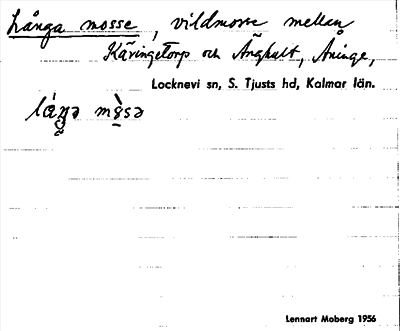 Långa mosse, vildmosse mellan
Käringetorp och Änghult, Åninge,
Locknevi sn, S. Tjusts hd, Kalmar län.
Lennart Moberg 1956